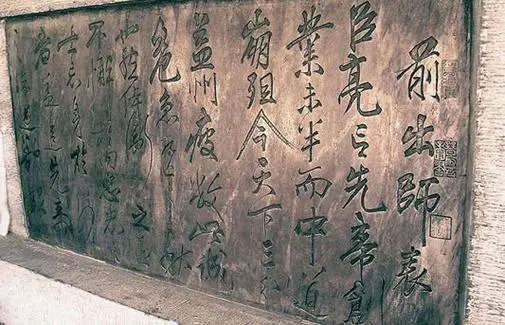 前出師表
臣亮言先帝創
業未半而中道
崩殂今天下三分
益州疲敝此誠
危急存亡之秋
也然侍衛之
不懈内忠志
士忘身於
者蓋追先帝